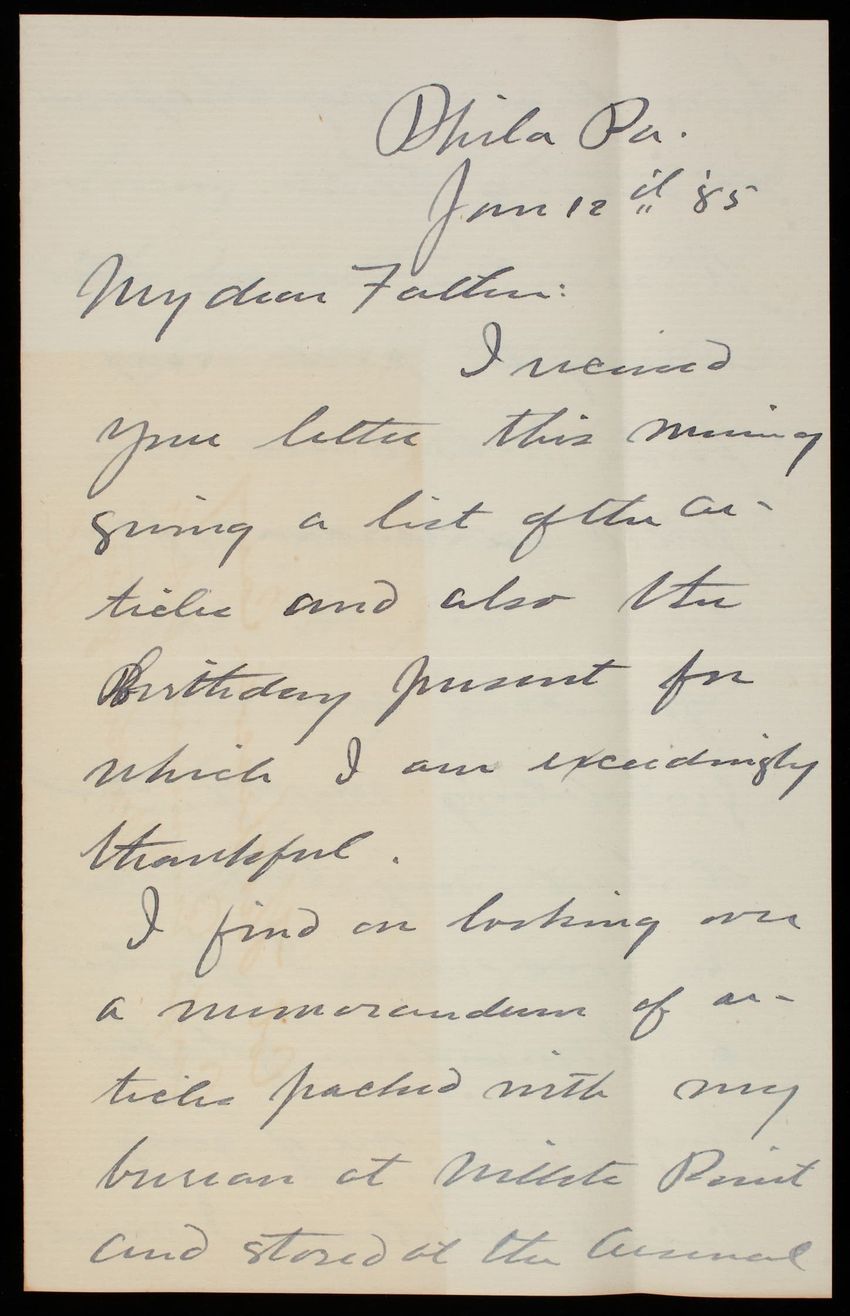 Phila Pa.
Jan 12th '85
My dear Father:
I received
your letter this morning
giving a list of the ar-
ticles and also the
Birthday present for
which I am exceedingly
thankful.
I find on looking over
a memorandum of ar-
ticles packed with my
bureau at Willets Point
and stored at the Arsenal